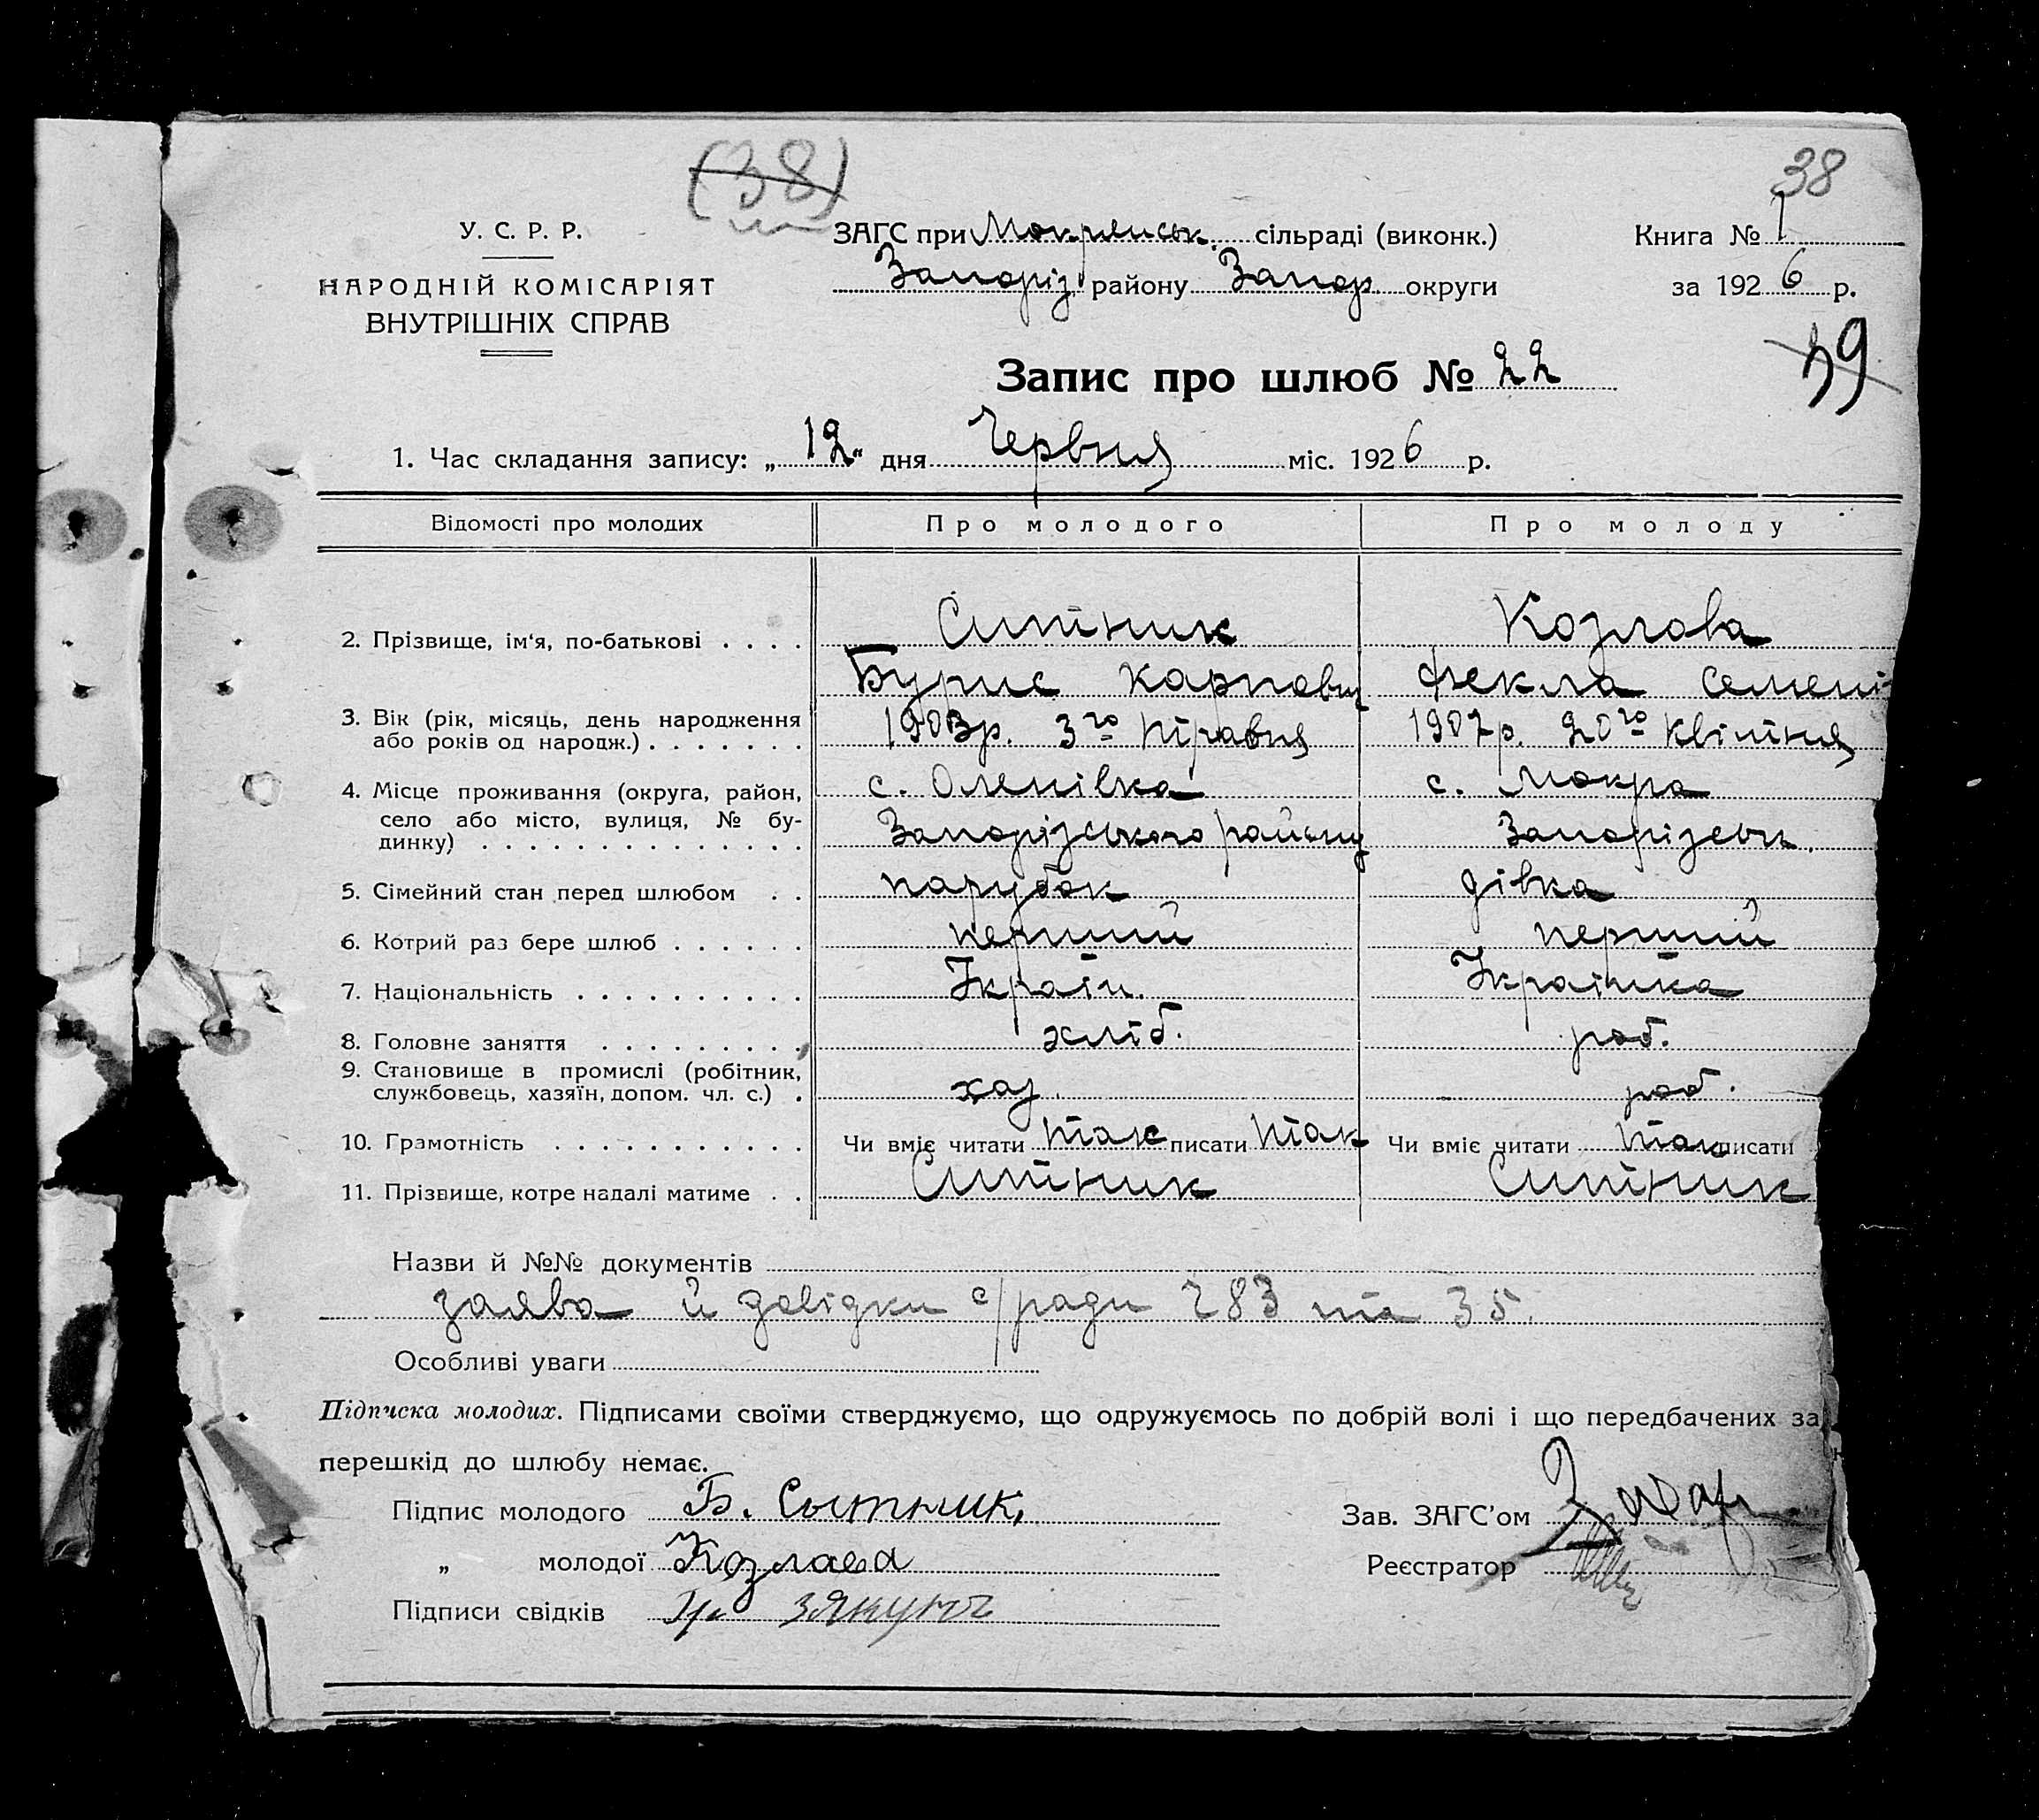 (38)
38
У. С. Р. Р.
НАРОДНІЙ КОМІСАРІЯТ
ВНУТРІШНІХ СПРАВ
ЗАГС при Мокрянськ. сільраді (виконк.)
Запоріз району Запор. округи
Книга № 1
за 1926 р.
39
Запис про шлюб № 22
1. Час складання запису: „12“ дня Червня міс. 1926 р.
Відомості про молодих Про молодого Про молоду
2. Прізвище, ім'я, по-батькові . . . . Ситник Козлова
Бурис Карпович Фекла Семені
3. Вік (рік, місяць, день народження
або років од народж.) . . . . . . . 1903р. 3го травня 1907р. 20го квітня
4. Місце проживання (округа, район, с. Оленівка с. Мокра
село або місто, вулиця, № бу-
динку) . . . . . . . . . . . . . . Запорізського району Запорізськ.
5. Сімейний стан перед шлюбом . . парубок дівка
6. Котрий раз бере шлюб . . . . . . перший перший
7. Національність . . . . . . . . . . Україн. Українка
8. Головне заняття . . . . . . . . . хліб. роб.
9. Становище в промислі (робітник,
службовець, хазяїн, допом. чл. с.) . хаз. роб.
10. Грамотність . . . . . . . . . . . Чи вміє читати так писати так Чи вміє читати так писати
11. Прізвище, котре надалі матиме . . Ситник Ситник
Назви й №№ документів
заява й довідки с/ради 283 та 35.
Особливі уваги
Підписка молодих. Підписами своїми стверджуємо, що одружуємось по добрій волі і що передбачених за
перешкід до шлюбу немає.
Підпис молодого Б. Сытник
„ молодої Козлава
Підписи свідків
Зав. ЗАГС'ом
Реєстратор